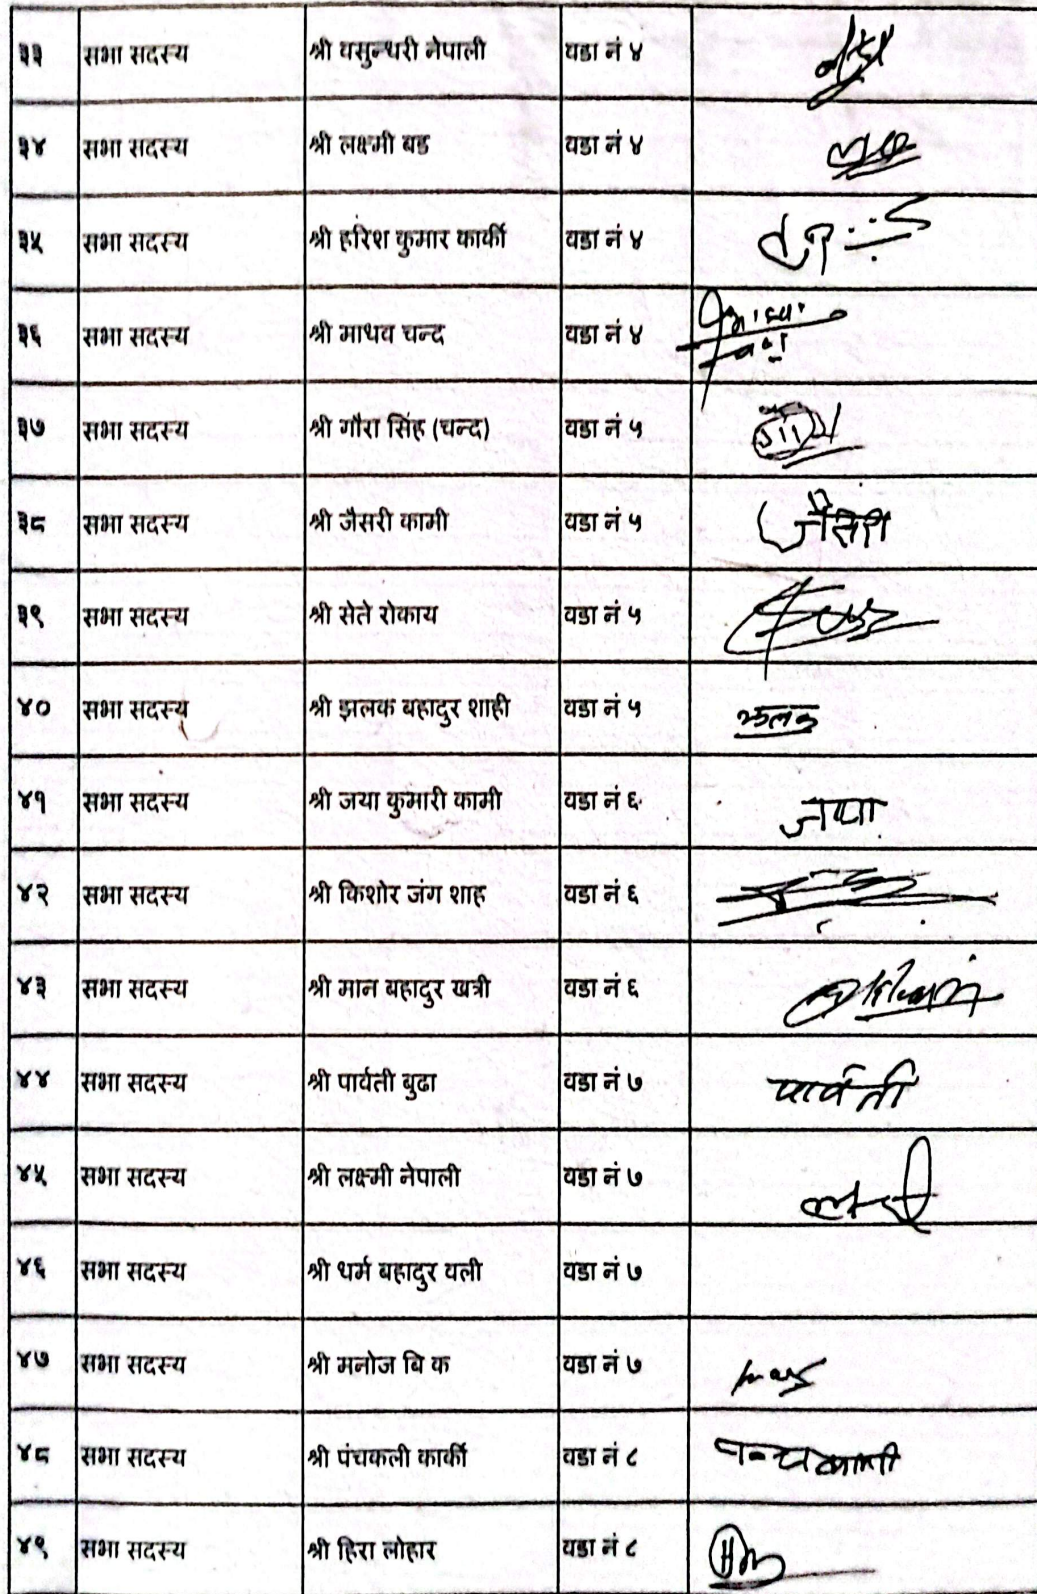 ३३ सभा सदस्य श्री वसुन्धरी नेपाली वडा नं ४
३४ सभा सदस्य श्री लक्ष्मी बड वडा नं ४
३५ सभा सदस्य श्री हरिश कुमार कार्की वडा नं ४
३६ सभा सदस्य श्री माधव चन्द वडा नं ४
३७ सभा सदस्य श्री गौरा सिंह (चन्द) वडा नं ५
३८ सभा सदस्य श्री जैसरी कामी वडा नं ५ जैसरी
३९ सभा सदस्य श्री सेते रोकाय वडा नं ५
४० सभा सदस्य श्री झलक बहादुर शाही वडा नं ५ झलक
४१ सभा सदस्य श्री जया कुमारी कामी वडा नं ६ जया
४२ सभा सदस्य श्री किशोर जंग शाह वडा नं ६
४३ सभा सदस्य श्री मान बहादुर खत्री वडा नं ६
४४ सभा सदस्य श्री पार्वती बुढा वडा नं ७ पार्वती
४५ सभा सदस्य श्री लक्ष्मी नेपाली वडा नं ७
४६ सभा सदस्य श्री धर्म बहादुर वली वडा नं ७
४७ सभा सदस्य श्री मनोज बि क वडा नं ७
४८ सभा सदस्य श्री पंचकली कार्की वडा नं ८
४९ सभा सदस्य श्री हिरा लोहार वडा नं ८